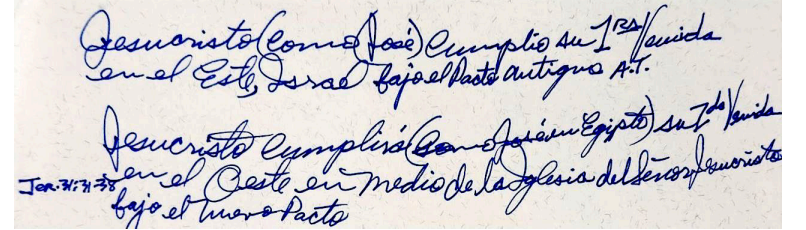 Jesucristo (como José) Cumplio su 1ra Venida
en el Este, Israel bajo el Pacto Antiguo A.T.
Jesucristo Cumplirá (como José en Egipto) su 2da Venida
Jer. 31:31-38 en el Oeste en medio de la Iglesia del Señor Jesucristo
bajo el Nuevo Pacto